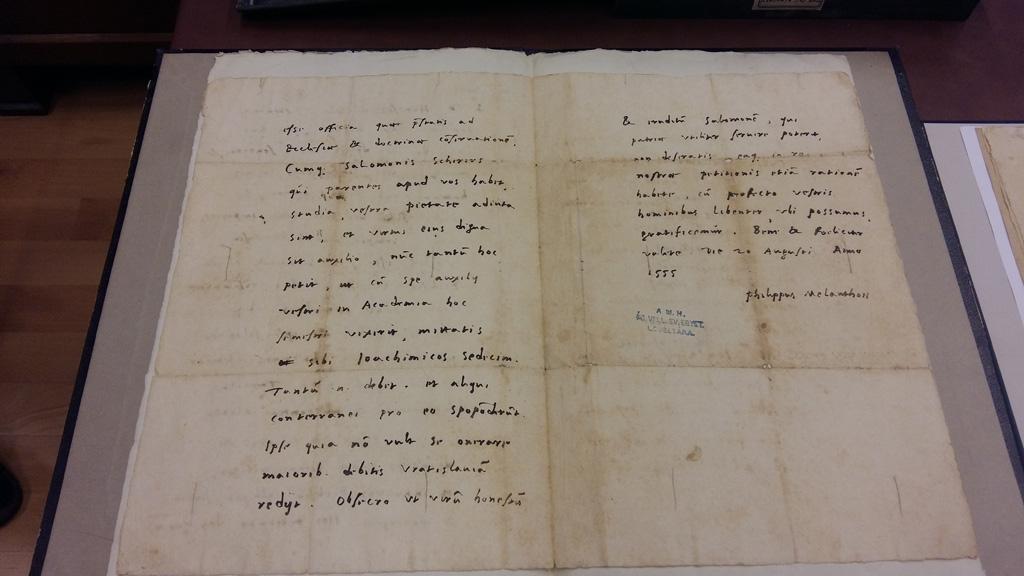 esse officia quae p̄statis ad
Ecclesiae & doctrinae cōservationē.
Cumq. Salomonis Scherers
qui parentes apud vos habet,
studia vestra pietate adiuta
sint, et virtus eius digna
sit auxilio, nūc tantū hoc
petit, ut cū spe auxilij
vestri in Academia hoc
semestri vixerit, mittatis
sibi Ioachimicos sedecim.
Tantū n. debet. et aliqui
conterranei pro eo spopōderūt.
Ipse quia nō vult se onerare
maiorib. debitis Vratislauiā
redijt. Obsecro ut virū honestū
& eruditū Salomonē, qui
patriae utiliter servire poterit,
non deseratis, eaq. in re
nostrae petitionis etiā rationē
habete, cū profecto vestris
hominibus libenter, ubi possumus,
gratificemur. Bene & foeliciter
valete die 20 Augusti Anno
1555
Philippus Melanthon
LEVÉLTÁRA.